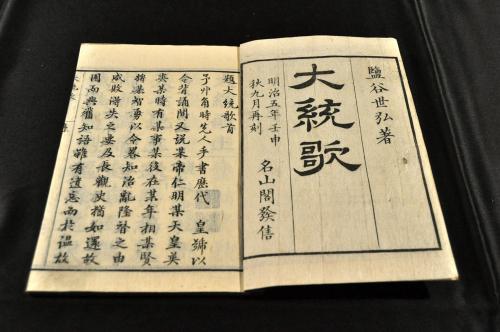 鹽谷世弘著
大統歌
明治五年壬申
秋九月再刻
名山閣發售
題大統歌首
予丱角時先人手書歴代　皇號以
令背誦間又說某帝仁明某天皇英
某時有某事某役在某年相某賢
將某智勇以令畧知治亂隆替之由
成敗得失之
及長觀史猶如邂故
因而無獲知語雖有遺忘而於温故